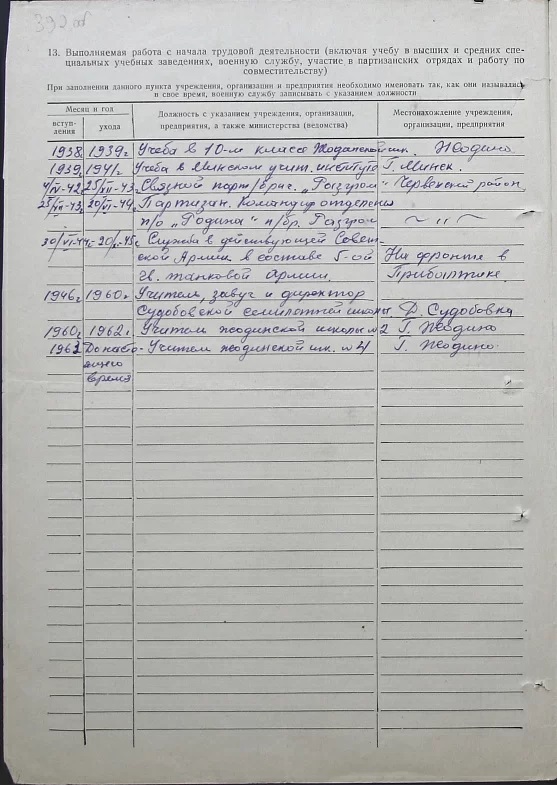 392 об
13. Выполняемая работа с начала трудовой деятельности (включая учебу в высших и средних спе-
циальных учебных заведениях, военную службу, участие в партизанских отрядах и работу по
совместительству)
При заполнении данного пункта учреждения, организации и предприятия необходимо именовать так, как они назывались
в свое время, военную службу записывать с указанием должности
Месяц и год
вступ-
ления
ухода
Должность с указанием учреждения, организации,
предприятия, а также министерства (ведомства)
Местонахождение учреждения,
организации, предприятия
1938 1939г Учеба в 10-м классе Жодинской шк. Жодино
1939 1941г. Учеба в Минском учит. институте Г. Минск.
4/IV-42 25/XII-43 Связной парт/бриг. „Разгром" Червенский район
25/XII-43 20/VI-44 Партизан. Командир отделения
п/о „Родина" п/бр. Разгром — 〃 —
30/VI-44 - 20/ -45г. Служба в действующей Совет-
ской Армии в составе 5-ой На фронте в
гв. танковой Армии. Прибалтике.
1946г 1960г Учитель, завуч и директор
Судобовской семилетней школы Д. Судобовка
1960г 1962г. Учитель жодинской школы № 2 Г. Жодино
1962 До насто- Учитель жодинской шк. № 4 Г. Жодино
ящего
время